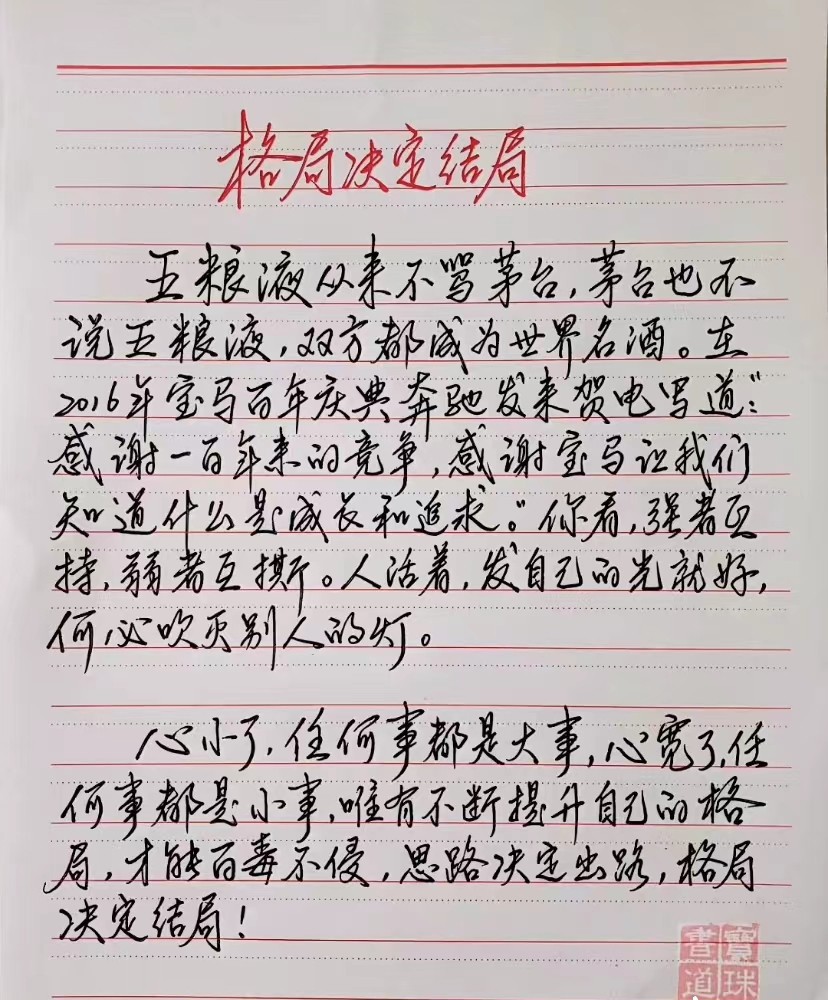 格局决定结局
五粮液从来不骂茅台,茅台也不
说五粮液,双方都成为世界名酒。在
2016年宝马百年庆典奔驰发来贺电写道:“
感谢一百年来的竞争,感谢宝马让我们
知道什么是成长和追求。”你看,强者互
持,弱者互撕。人活着,发自己的光就好,
何必吹灭别人的灯。
心小了,任何事都是大事,心宽了,任
何事都是小事,唯有不断提升自己的格
局,才能百毒不侵,思路决定出路,格局
决定结局!
寶珠
書道